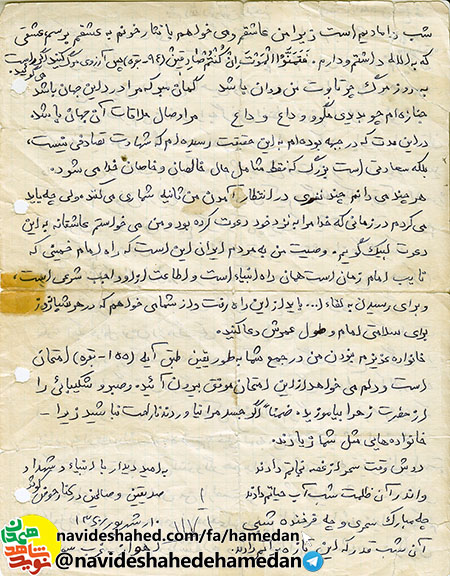 شب دامادیم است زیرا من عاشقم و می خواهم با نثار خونم به عشقم برسم عشقی
که به الله داشتم و دارم. فَتَمَنَّوُا الْمَوْتَ اِنْ كُنْتُمْ صادِقينَ (۹۴-بقره) پس آرزوی مرگ کنید اگر راست می گوئید
به روز مرگ چو تابوت من روان باشد گمان مبر که مرا درد این جهان باشد
جنازه ام چو بدیدی مگو وداع وداع مرا وصال ملاقات آن جهان باشد
در این مدت که در جبهه بوده ام به این حقیقت رسیده ام که شهادت تصادفی نیست،
بلکه سعادتی است بزرگ که فقط شامل حال خالصان و خاصان خدا می شود.
هر چند می دانم چند نفری در انتظار آمدن من ثانیه شماری می کنند ولی چه باید
می کردم در زمانی که خدا مرا به نزد خود دعوت کرده بود و من می خواستم عاشقانه به این
دعوت لبیک گویم. وصیت من به مردم ایران این است که راه امام خمینی که
نایب امام زمان است همان راه انبیاء است و اطاعت از او واجب شرعی است،
و برای رسیدن به لقاء ا... باید از این راه رفت و از شما می خواهم که در هر شبانروز
برای سلامتی امام و طول عمرش دعا کنید.
خانواده عزیزم نبودن من در جمع شما به طور یقین طبق آیه (۱۵۵-بقره) امتحان
است و دلم می خواهد از این امتحان موفق بیرون آئید. و صبر و شکیبائی را
از حضرت زهرا بیاموزید. ضمناً اگر جسد مرا نیاوردند ناراحت نباشید زیرا -
خانواده هایی مثل شما زیادند.
دوش وقت سحر از غصه نجاتم دادند به امید دیدار با انبیاء و شهدا و
واندر آن ظلمت شب آب حیاتم دادند صدیقین و صالحین در کنار حوض کوثر
چه مبارک سحری و چه فرخنده شبی ۱۰ شهریور
آن شب قدر که این تازه براتم دادند. اهواز
navideshahed.com/fa/hamedan
@navideshahedehamedan
نوید شاهد